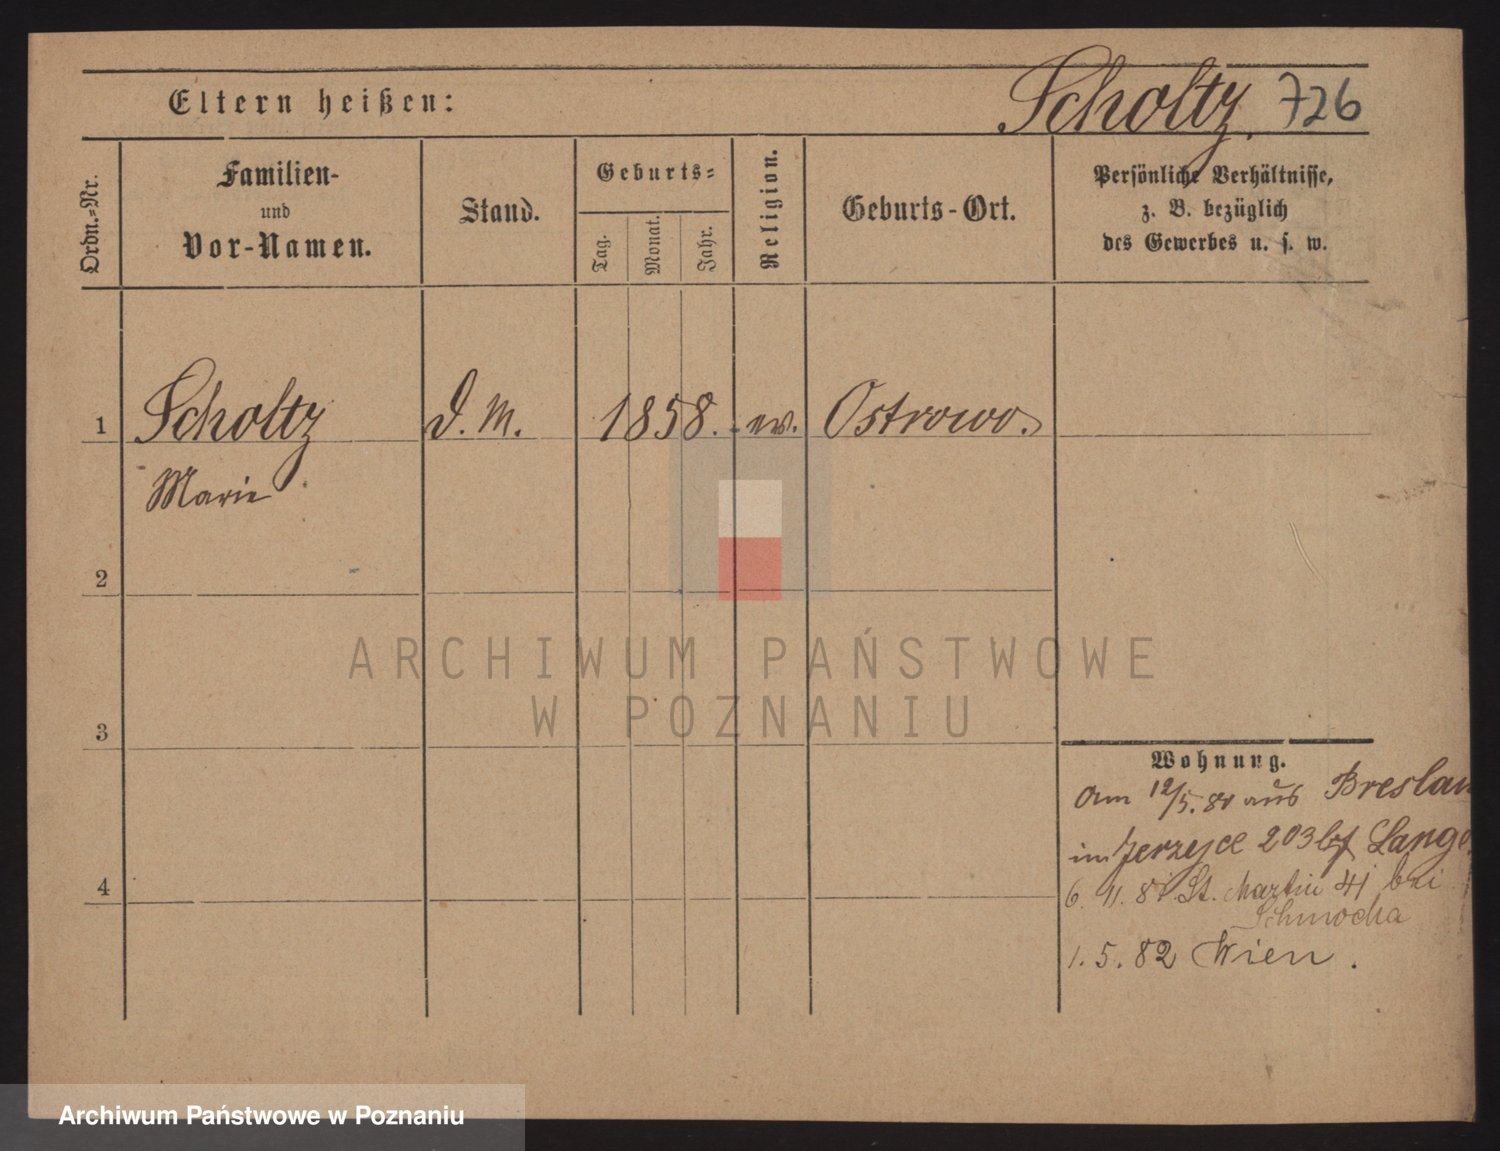 Eltern heißen:
Scholtz. 726
Ordn.-Nr.
Familien-
und
Vor-Namen.
Stand.
Geburts-
Tag.
Monat.
Jahr.
Religion.
Geburts-Ort.
Persönliche Verhältnisse,
z. B. bezüglich
des Gewerbes u. s. w.
1 Scholtz D. M. 1858. ev. Ostrowo.
Marie
2
3
4
Wohnung.
Am 12/5. 81 aus Breslau
in Jerzyce 203 Lange
6. 11. 81. St. Martin 41 bei
Schmocha
1. 5. 82 Wien.
ARCHIWUM PAŃSTWOWE
W POZNANIU
Archiwum Państwowe w Poznaniu